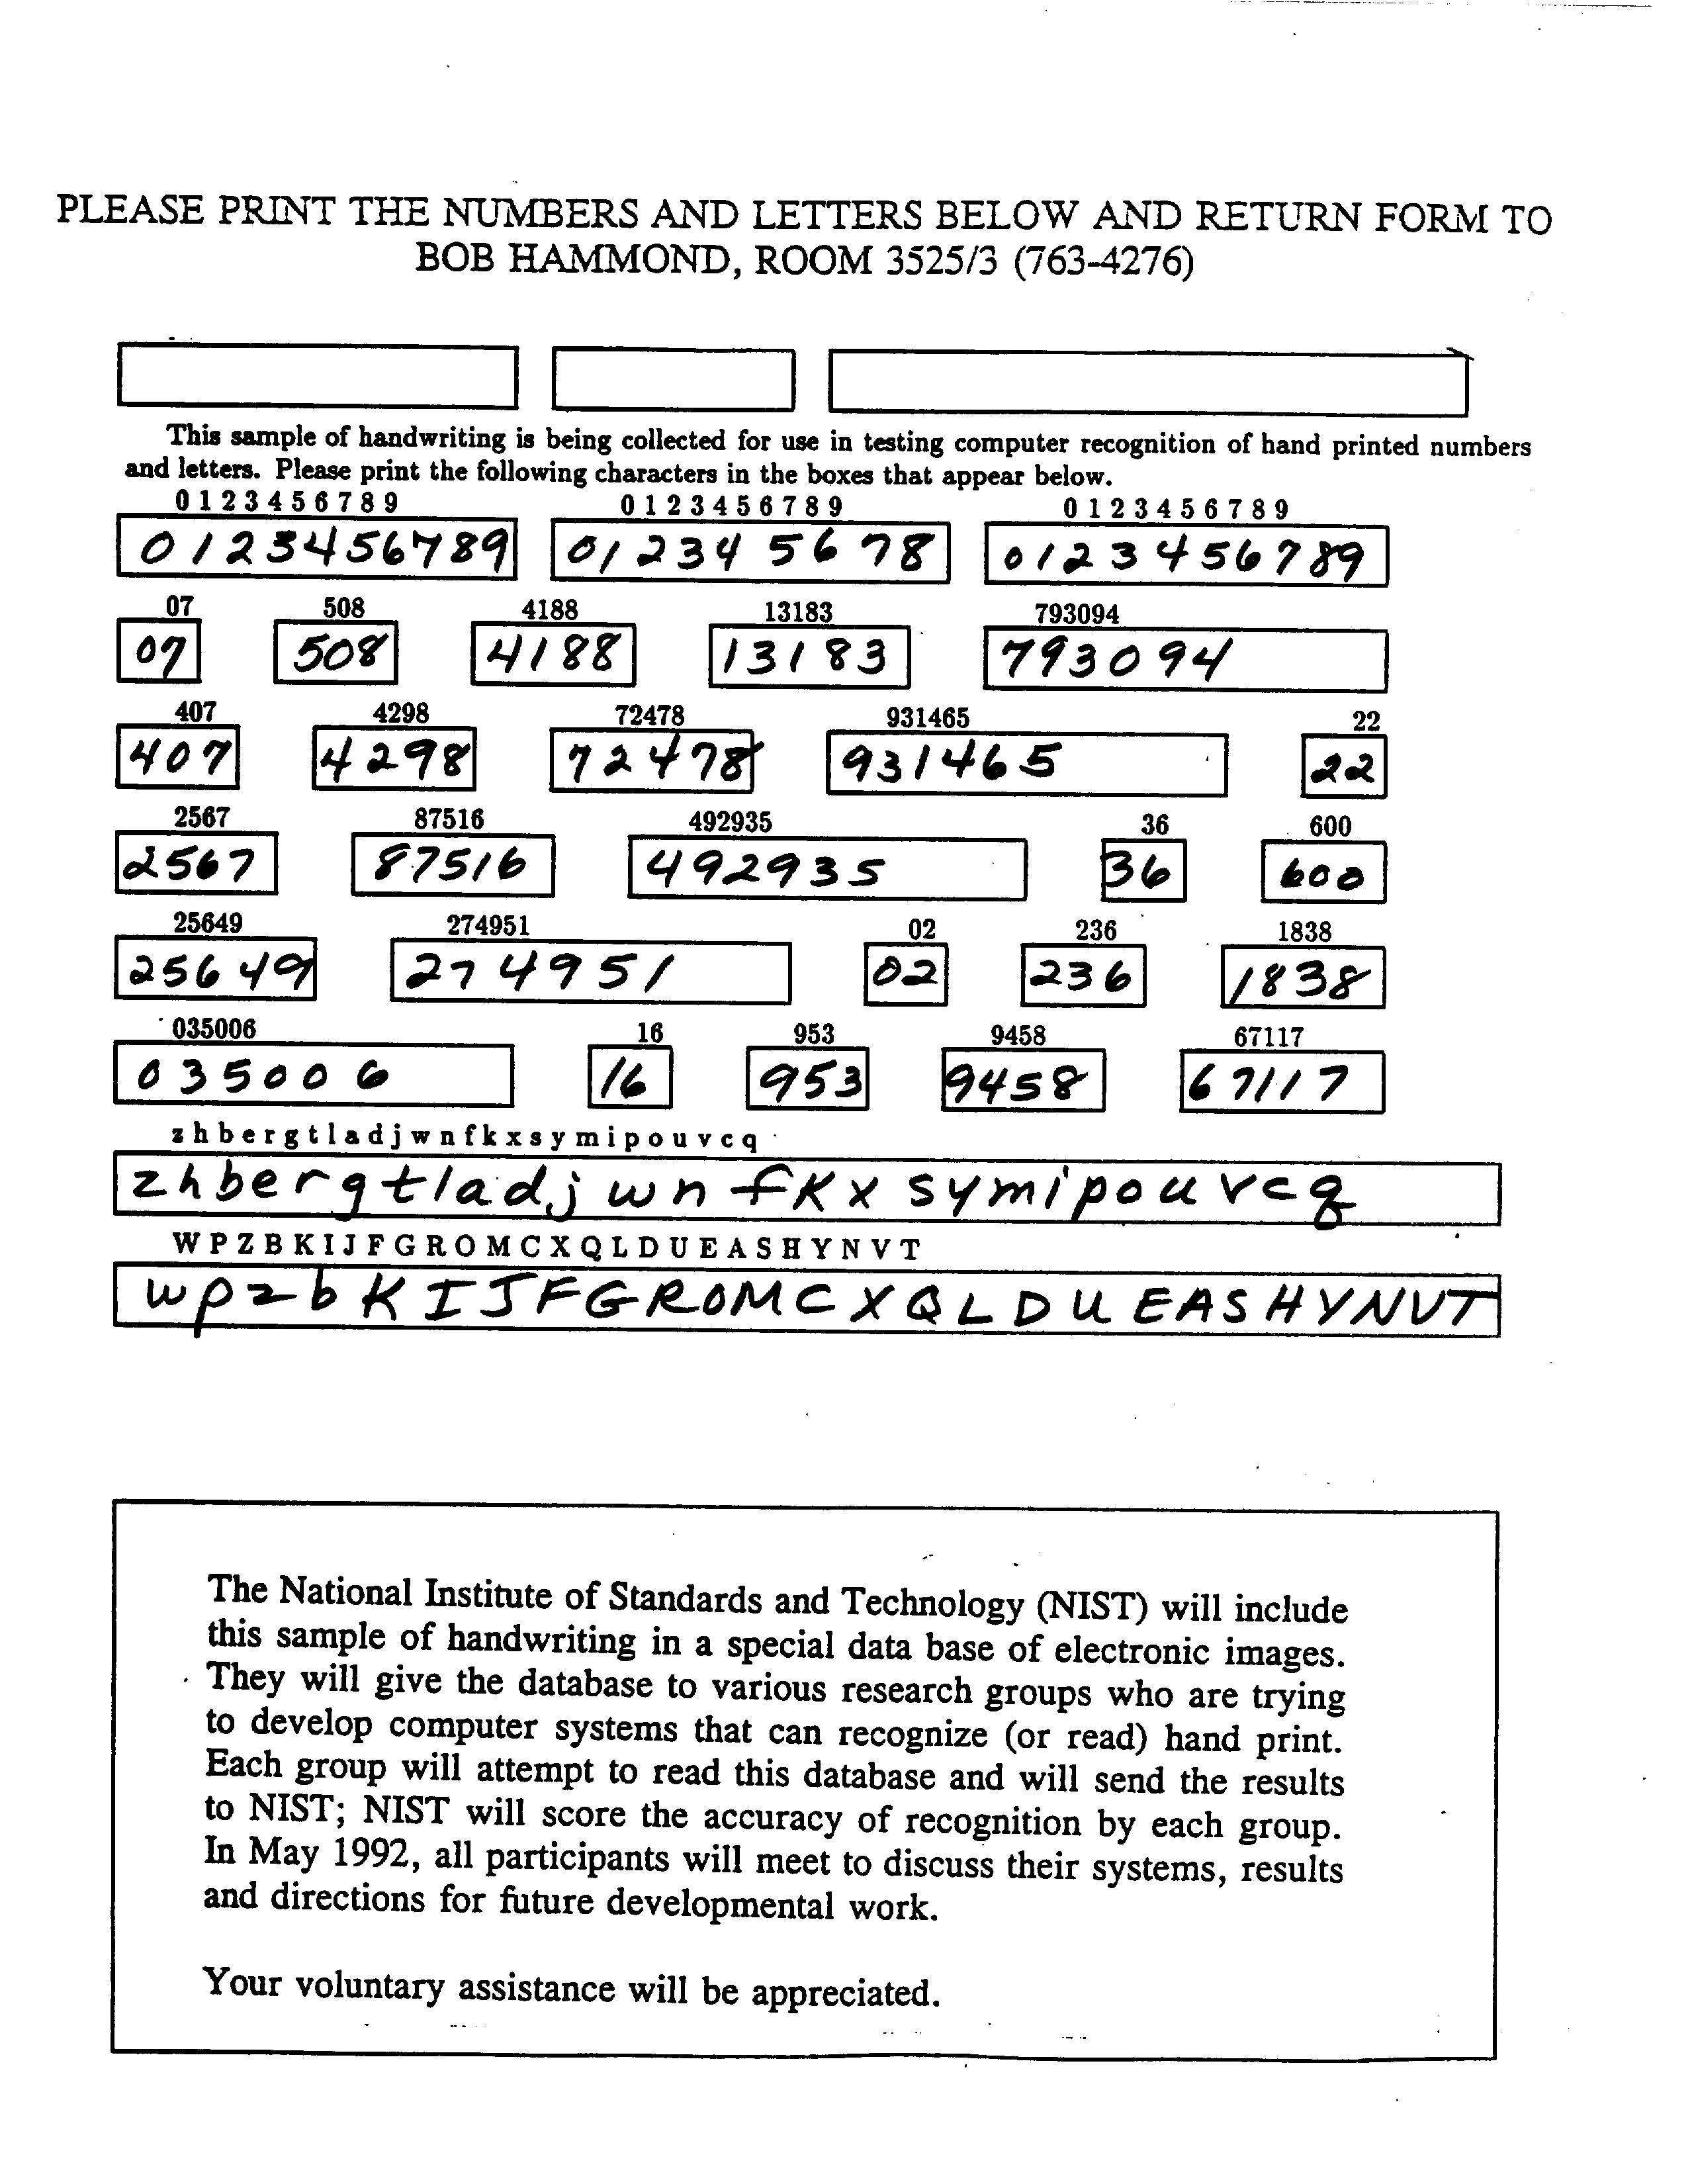 PLEASE PRINT THE NUMBERS AND LETTERS BELOW AND RETURN FORM TO
BOB HAMMOND, ROOM 3525/3 (763-4276)
This sample of handwriting is being collected for use in testing computer recognition of hand printed numbers
and letters. Please print the following characters in the boxes that appear below.
0 1 2 3 4 5 6 7 8 9 0 1 2 3 4 5 6 7 8 9 0 1 2 3 4 5 6 7 8 9
0123456789 012345678 0123456789
07 508 4188 13183 793094
07 508 4188 13183 793094
407 4298 72478 931465 22
407 4298 72478 931465 22
2567 87516 492935 36 600
2567 87516 492935 36 600
25649 274951 02 236 1838
25649 274951 02 236 1838
035006 16 953 9458 67117
035006 16 953 9458 67117
z h b e r g t l a d j w n f k x s y m i p o u v c q
z h b e r g t l a d j w n f K x s y m i p o u v c q
W P Z B K I J F G R O M C X Q L D U E A S H Y N V T
w p z b K I J F G R O M C X Q L D U E A S H Y N V T
The National Institute of Standards and Technology (NIST) will include
this sample of handwriting in a special data base of electronic images.
They will give the database to various research groups who are trying
to develop computer systems that can recognize (or read) hand print.
Each group will attempt to read this database and will send the results
to NIST; NIST will score the accuracy of recognition by each group.
In May 1992, all participants will meet to discuss their systems, results
and directions for future developmental work.
Your voluntary assistance will be appreciated.